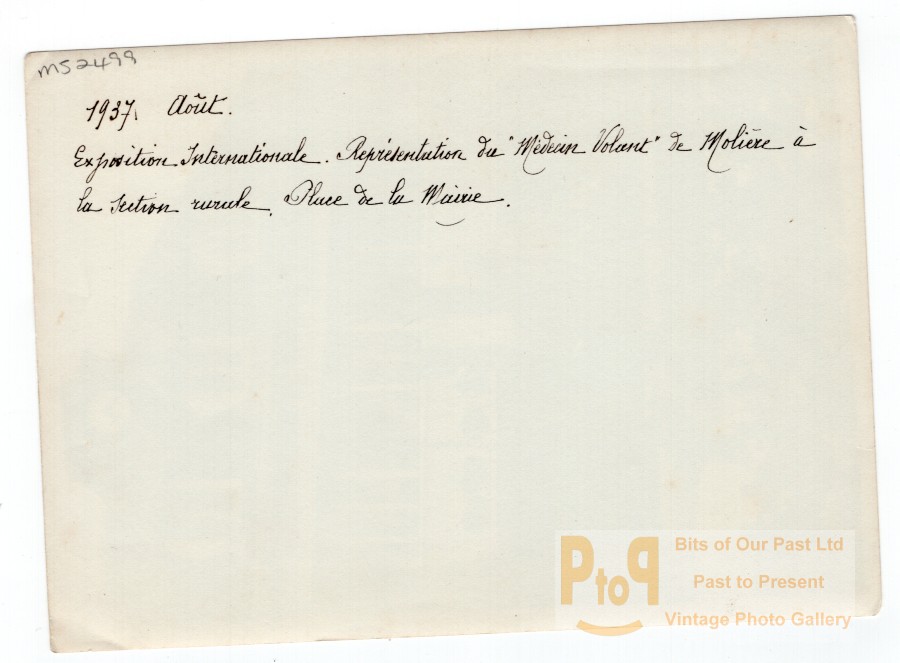 MS2499
1937. Août.
Exposition Internationale. Représentation du "Médecin Volant" de Molière à
la section rurale. Place de la Mairie.
PtoP
Bits of Our Past Ltd
Past to Present
Vintage Photo Gallery